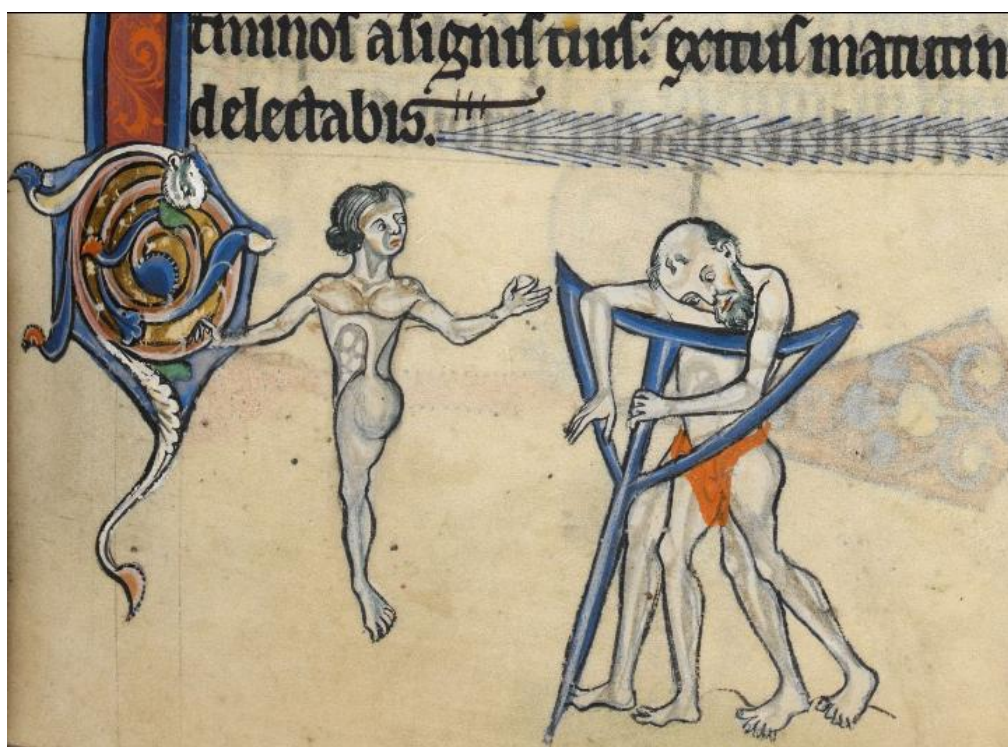 tminos a signis tuis: exitus matutin
delectabis.